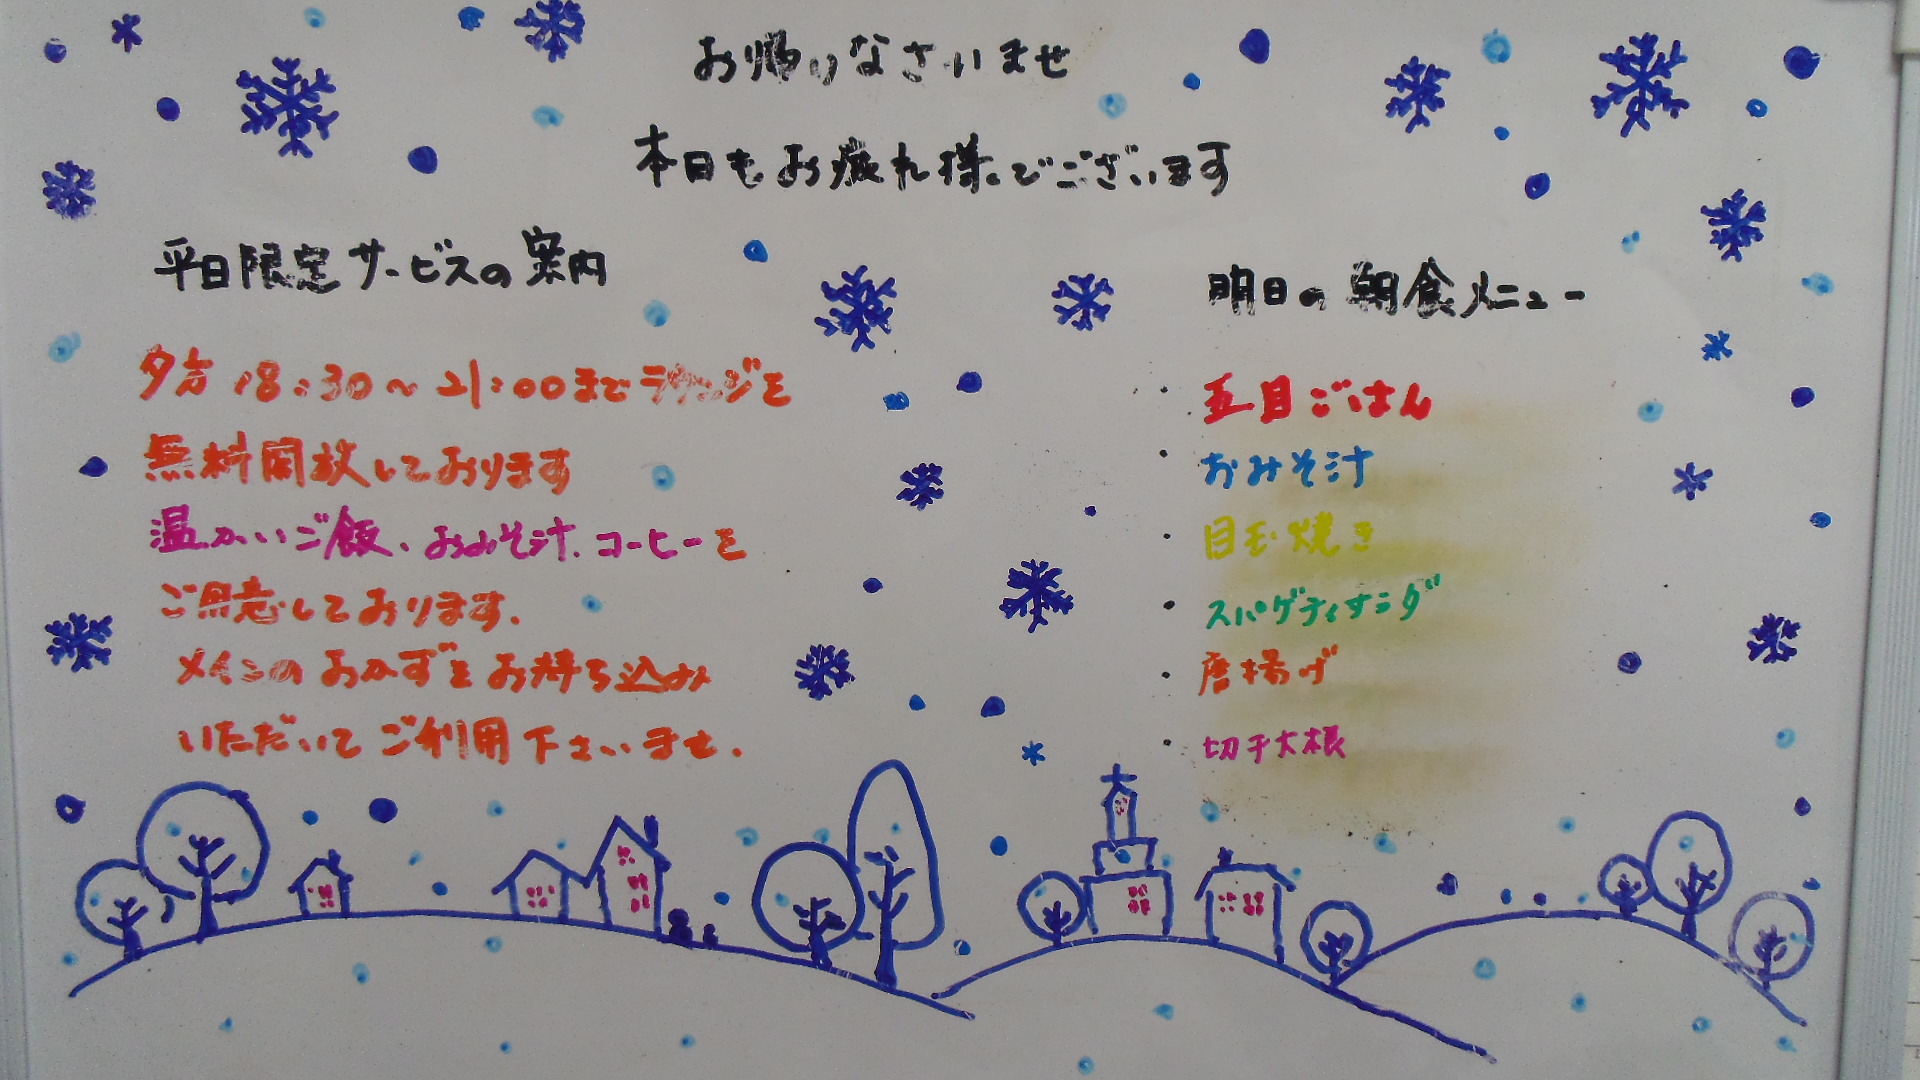 お帰りなさいませ
本日もお疲れ様でございます
平日限定サービスの案内
夕方18:30～21:00までラウンジを
無料開放しております
温かいご飯、おみそ汁、コーヒーを
ご用意しております.
メインのおかずをお持ち込み
いただいてご利用下さいませ.
明日の朝食メニュー
・五目ごはん
・おみそ汁
・目玉焼き
・スパゲティサラダ
・唐揚げ
・切干大根